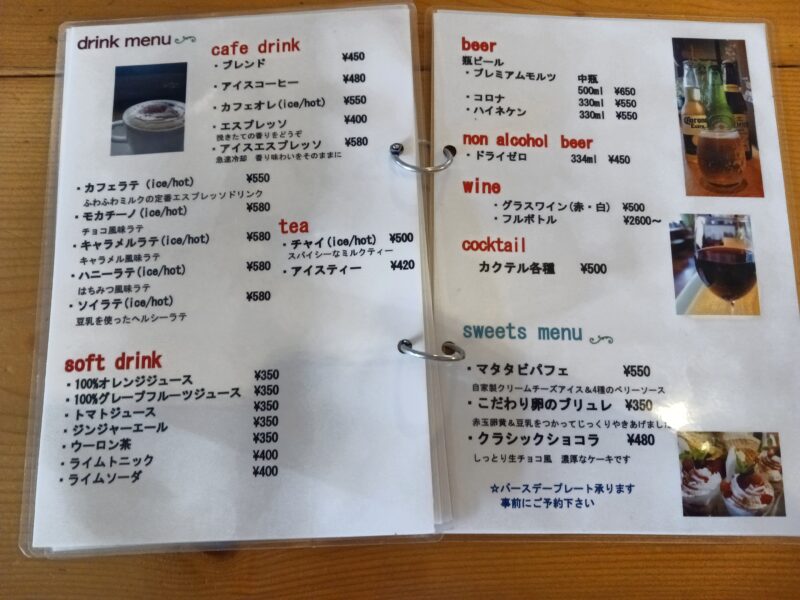 drink menu
cafe drink
・ブレンド ¥450
・アイスコーヒー ¥480
・カフェオレ(ice/hot) ¥550
・エスプレッソ ¥400
挽きたての香りをどうぞ
・アイスエスプレッソ ¥580
急速冷却 香り味わいをそのままに
・カフェラテ (ice/hot) ¥550
ふわふわミルクの定番エスプレッソドリンク
・モカチーノ(ice/hot) ¥580
チョコ風味ラテ
・キャラメルラテ(ice/hot) ¥580
キャラメル風味ラテ
・ハニーラテ(ice/hot) ¥580
はちみつ風味ラテ
・ソイラテ(ice/hot) ¥580
豆乳を使ったヘルシーラテ
tea
・チャイ(ice/hot) ¥500
スパイシーなミルクティー
・アイスティー ¥420
soft drink
・100%オレンジジュース ¥350
・100%グレープフルーツジュース ¥350
・トマトジュース ¥350
・ジンジャーエール ¥350
・ウーロン茶 ¥350
・ライムトニック ¥400
・ライムソーダ ¥400
beer
瓶ビール
・プレミアムモルツ 中瓶
500ml ¥650
・コロナ 330ml ¥550
・ハイネケン 330ml ¥550
non alcohol beer
・ドライゼロ 334ml ¥450
wine
・グラスワイン(赤・白) ¥500
・フルボトル ¥2600～
cocktail
カクテル各種 ¥500
sweets menu
・マタタビパフェ ¥550
自家製クリームチーズアイス＆4種のベリーソース
・こだわり卵のブリュレ ¥350
赤玉卵黄＆豆乳をつかってじっくりやきあげました
・クラシックショコラ ¥480
しっとり生チョコ風 濃厚なケーキです
☆バースデープレート承ります
事前にご予約下さい